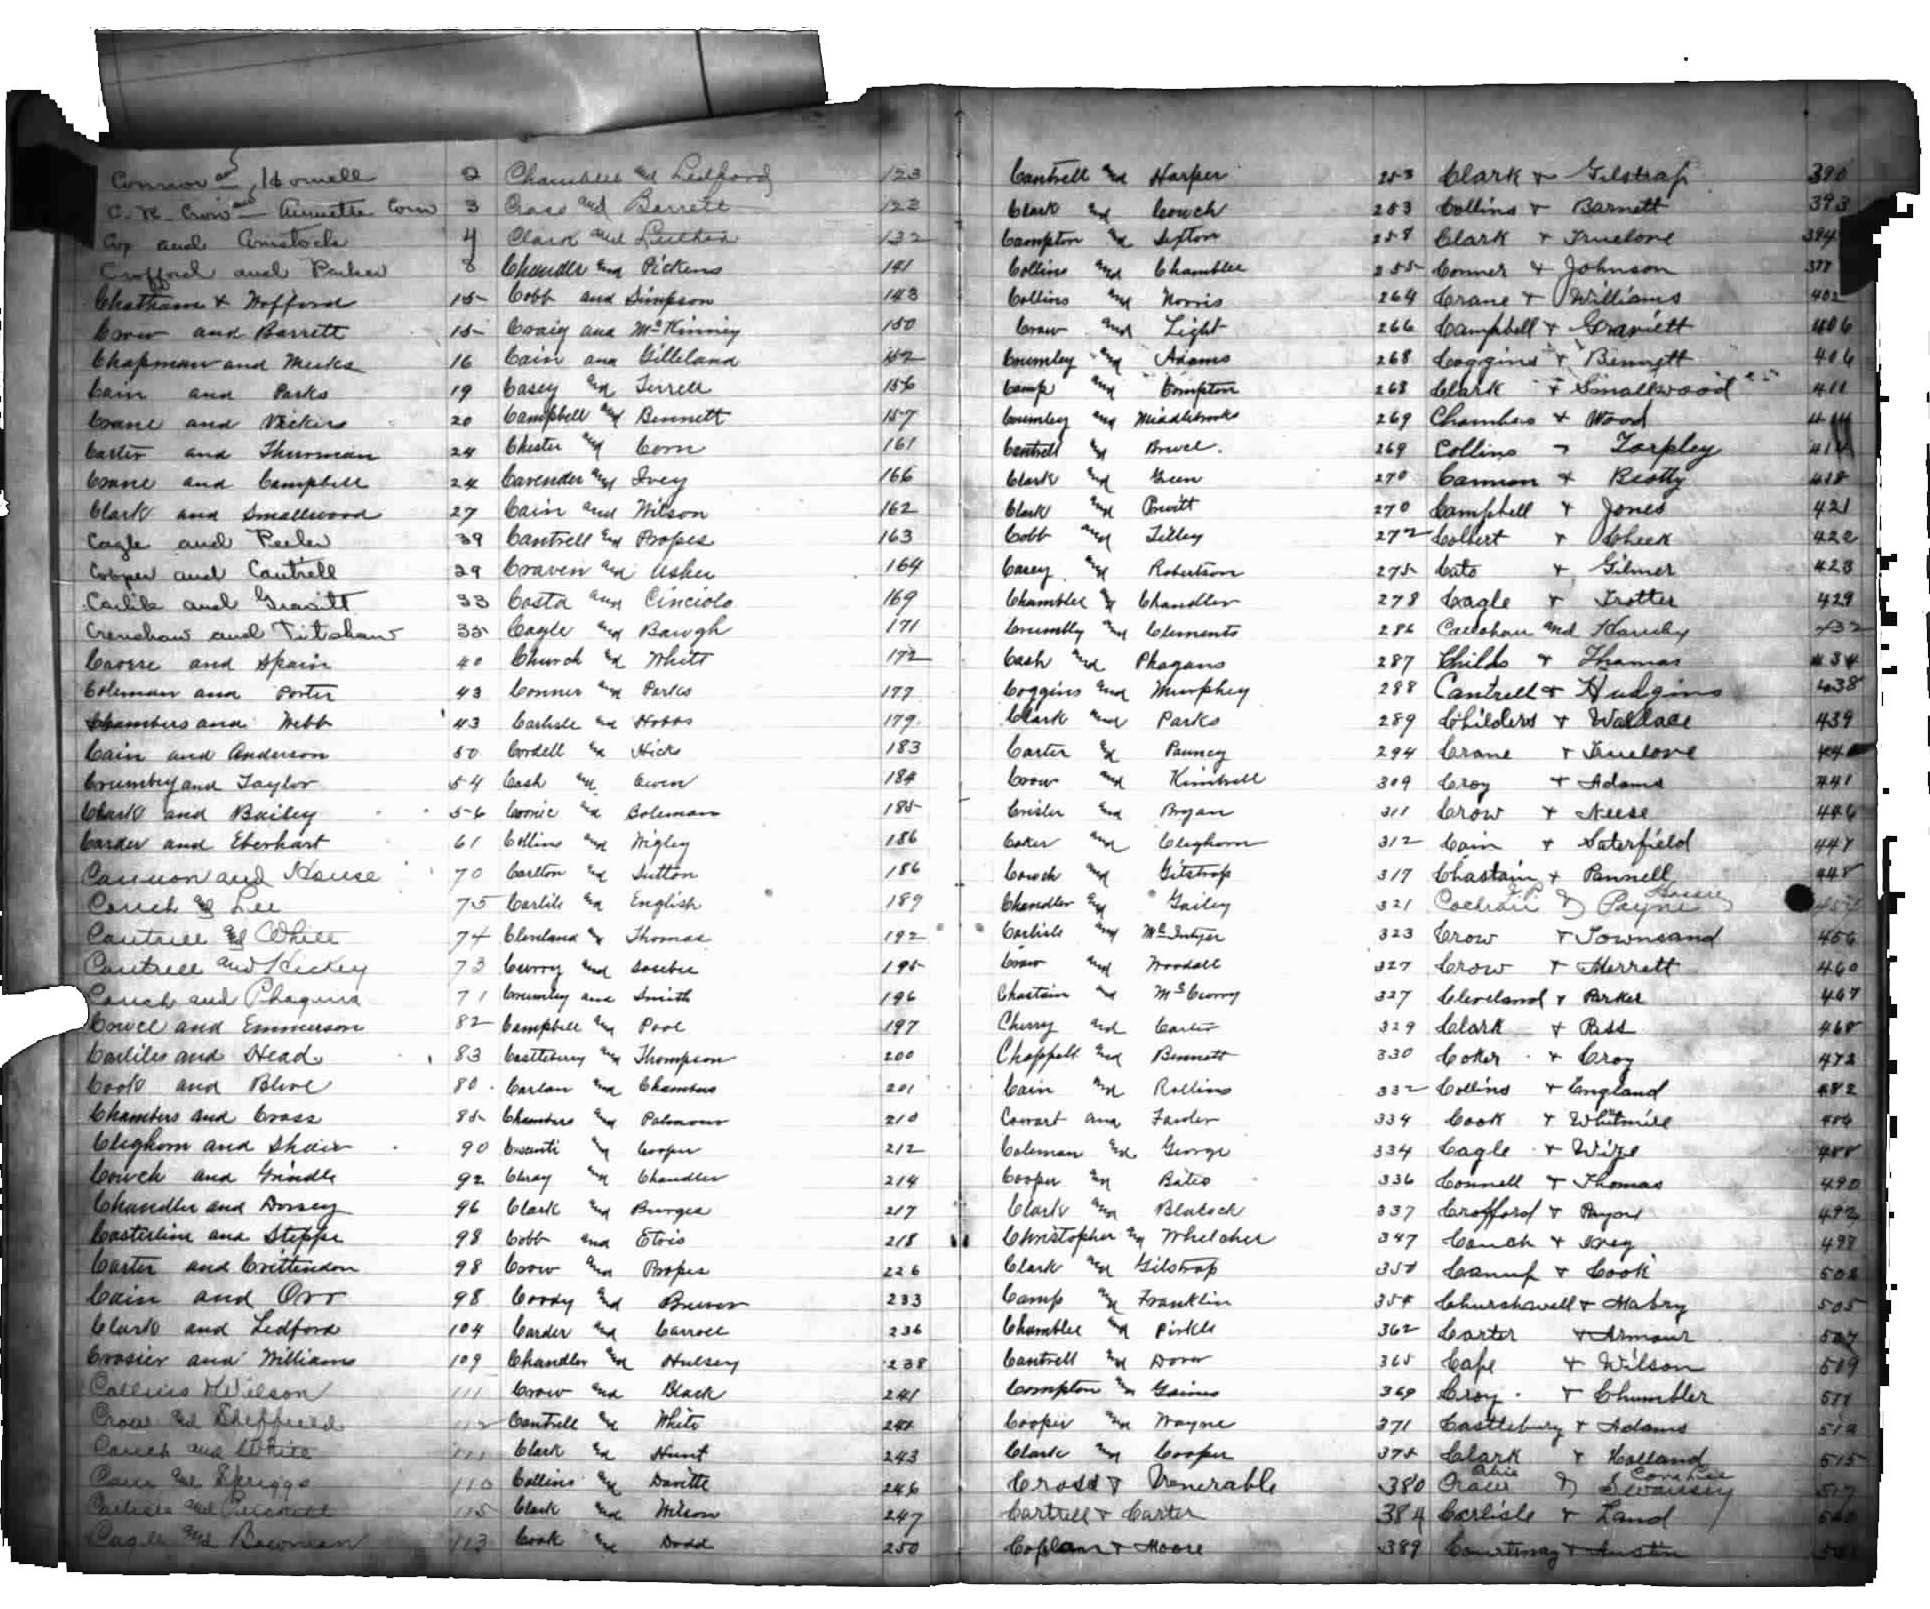 Connor and Howell 2
C. R. Crow and Annette Corn 3
Coy and Comstock 4
Crofford and Parker 8
Chatham & Wofford 15
Crow and Barrett 15
Chapman and Meeks 16
Cain and Parks 19
Crane and Vickers 20
Carter and Thurman 24
Crane and Campbell 24
Clark and Smallwood 27
Cagle and Peeler 39
Cooper and Cantrell 29
Carlile and Gravitt 33
Crenshaw and Titshaw 35
Causse and Spain 40
Coleman and Porter 43
Chambers and Webb 43
Cain and Anderson 50
Crumbey and Taylor 54
Clark and Bailey 56
Carder and Eberhart 61
Cannon and House 70
Couch and Lee 75
Cantrell and White 74
Cantrell and Hickey 73
Couch and Phagans 71
Cowel and Emmerson 82
Carliles and Head 83
Cook and Blive 80
Chambers and Cross 85
Cleghorn and Shaw 90
Couch and Grindle 92
Chandler and Dorsey 96
Casterline and Stepps 98
Carter and Crittendon 98
Cain and Orr 98
Clark and Ledford 104
Crosier and Williams 109
Collins & Wilson 111
Crow and Sheffield 112
Couch and White 111
Cain and Spriggs 110
Carlisle and Puckett 115
Cagle and Bowman 113
Chamblee and Ledford 123
Cross and Barrett 123
Clark and Luther 132
Chandler and Pickens 141
Cobb and Simpson 143
Craig and McKinney 150
Cain and Gilleland 152
Casey and Terrell 156
Campbell and Bennett 157
Chester and Corn 161
Cavender and Ivey 166
Cain and Wilson 162
Cantrell and Propes 163
Craven and Usher 164
Costa and Cinciolo 169
Cagle and Baugh 171
Church and White 172
Conner and Parks 177
Carlisle and Hobbs 179
Cordell and Hicks 183
Cash and Owen 184
Coonie and Coleman 185
Collins and Wigley 186
Carlton and Sutton 186
Carlile and English 189
Cleveland and Thomas 192
Curry and Sosebee 195
Crumley and Smith 196
Campbell and Pool 197
Castleberry and Thompson 200
Carlan and Chambers 201
Chambers and Palmour 210
and Cooper 212
Clray and Chandler 214
Clark and Burges 217
Cobb and Etris 218
Crow and Propes 226
Coody and Brewer 233
Carder and Carroll 236
Chandler and Hulsey 238
Crow and Black 241
Cantrell and White 241
Clark and Hunt 243
Collins and Davitte 246
Clark and Wilson 247
Cook and Dodd 250
Cantrell and Harper 253
Clark and Couch 253
Compton and Sexton 258
Collins and Chamblee 255
Collins and Norris 264
Crow and Light 266
Crumley and Adams 268
Camp and Compton 268
Crumley and Middlebrooks 269
Cantrell and Bruce 269
Clark and Green 270
Clark and Pruitt 270
Cobb and Lilley 272
Casey and Robertson 275
Chamblee & Chandler 278
Crumbly and Clements 286
Cash and Phagans 287
Coggins and Murphey 288
Clark and Parks 289
Carter and Pauney 294
Crow and Kimbrell 309
Crisler and Bryan 311
Coker and Cleghorn 312
Couch and Gilstrap 317
Chandler and Gailey 321
Carlisle and McIntyer 323
Crow and Woodall 327
Chastain and McCurry 327
Cherry and Carter 329
Chappell and Bennett 330
Cain and Rollins 332
Cowart and Fowler 334
Coleman and George 334
Cooper and Bates 336
Clark and Blalock 337
Christopher and Whelcher 347
Clark and Gilstrap 350
Camp and Franklin 354
Chamblee and Pirkle 362
Cantrell and Dover 365
Compton and Gaines 369
Cooper and Wayne 371
Clark and Cooper 375
Cross & Venerable 380
Cartrell & Carter 384
Coplan & Moore 389
Clark & Gilstrap 390
Collins & Barnett 393
Clark & Truelove 394
Conner & Johnson 397
Crane & Williams 402
Campbell & Graviett 406
Coggins & Bennett 406
Clark & Smallwood 411
Chambers & Wood 414
Collins & Tarpley 414
Cannon & Beatty 418
Campbell & Jones 421
Colbert & Cheek 422
Cato & Gilmer 423
Cagle & Trotter 429
Caushau and Hamby 432
Childs & Thomas 434
Cantrell & Hudgins 438
Childers & Wallace 439
Crane & Truelove 440
Croy & Adams 441
Crow & Neese 446
Cain & Saterfield 447
Chastain & Pannell 448
Cochran J.P. & Payne
Crow & Townsand 456
Crow & Merrett 460
Cleveland & Parker 467
Clark & Pass 468
Coker & Croy 472
Collins & England 482
Cook & Whitmire 486
Cagle & Wize 488
Connell & Thomas 490
Crofford & Payne 492
Couch & Ivey 498
Canup & Cook 502
Churchwell & Mabry 505
Carter & Armour 507
Cape & Wilson 509
Croy & Chumbler 511
Castlebury & Adams 512
Clark & Holland 515
Crow Obie & Swansey Cora Lee 517
Carlisle & Land 520
Courtenay & Austin